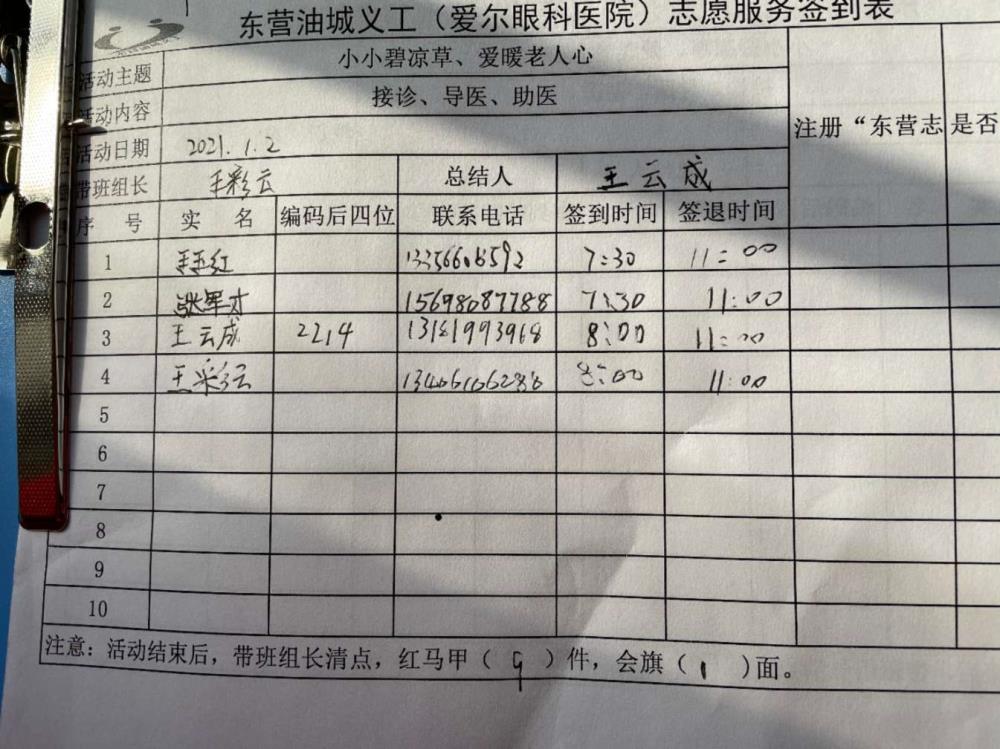 东营油城义工（爱尔眼科医院）志愿服务签到表
活动主题 小小碧凉草、爱暖老人心
活动内容 接诊、导医、助医
注册“东营志 是否
活动日期 2021.1.2
带班组长 王彩云 总结人 王云成
序 号 实 名 编码后四位 联系电话 签到时间 签退时间
1 7:30 11:00
2 张军才 15698087788 7:30 11:00
3 王云成 2214 13181993968 8:00 11:00
4 王彩云 8:00 11:00
5
6
7
8
9
10
注意：活动结束后，带班组长清点，红马甲（ 9 ）件，会旗（ 1 ）面。